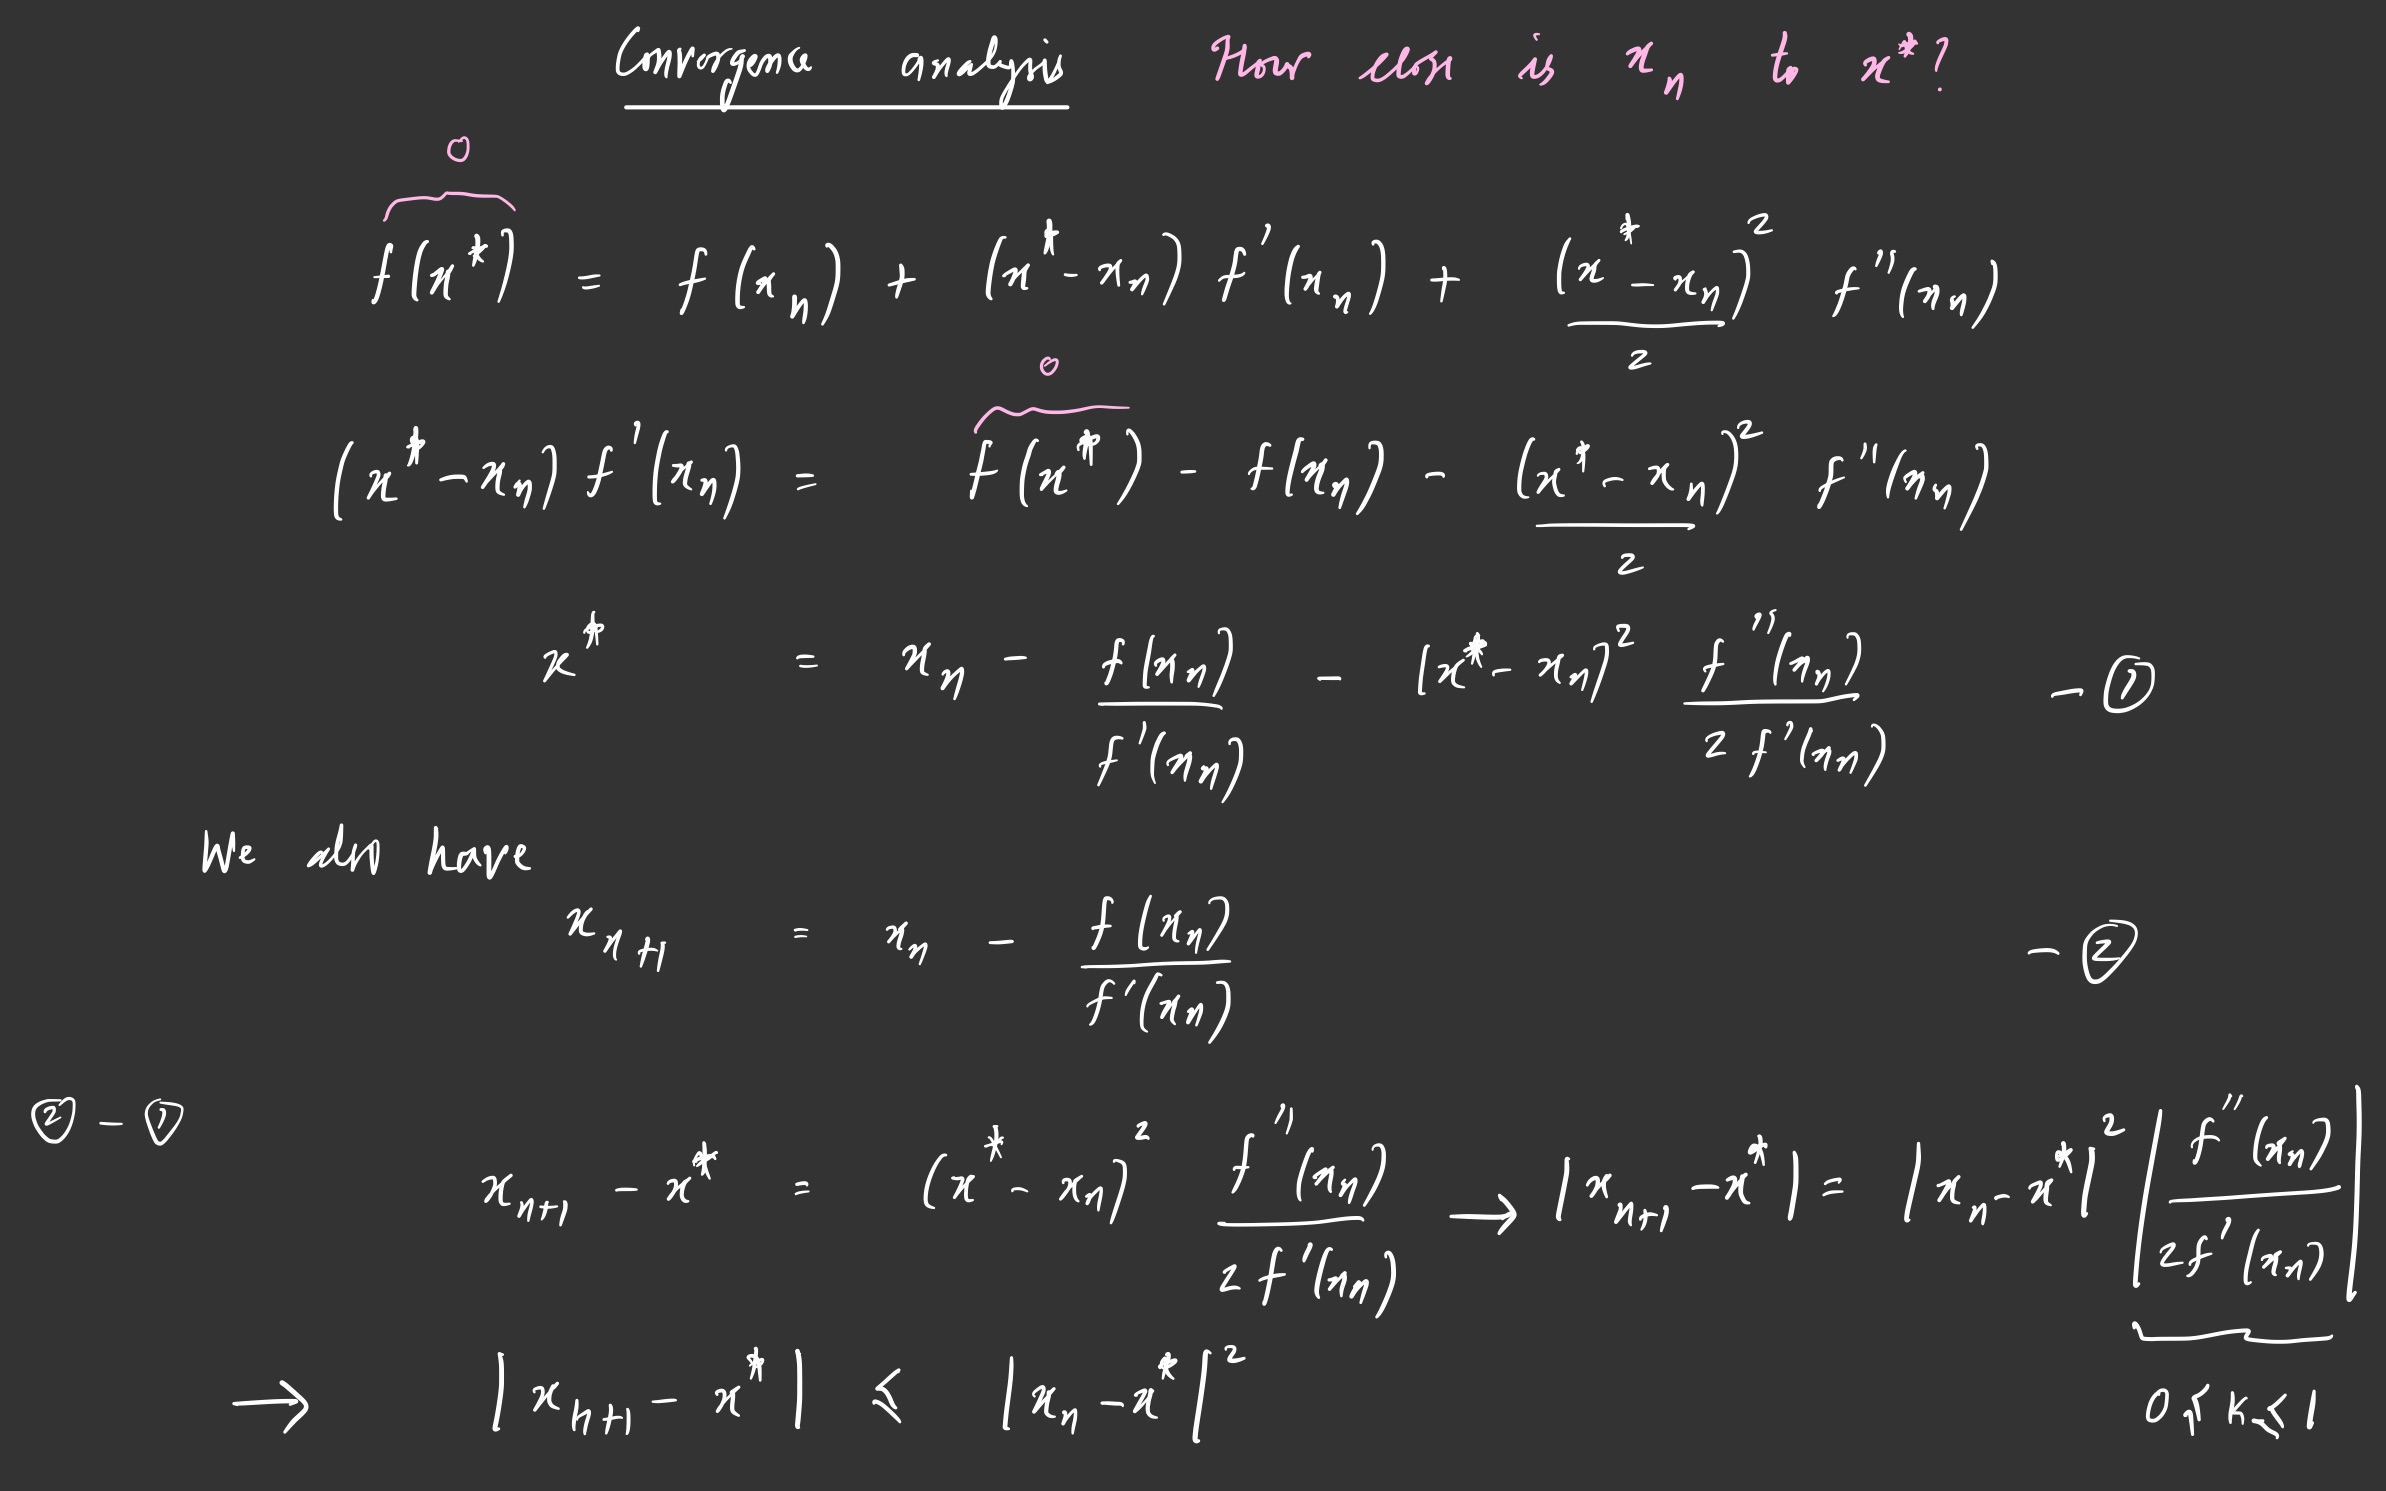 Convergence analysis How close is xₙ to x*?
0
f(x*) = f(xₙ) + (x* - xₙ) f'(xₙ) + (x* - xₙ)²/2 f''(xₙ)
0
(x* - xₙ) f'(xₙ) = f(x*) - f(xₙ) - (x* - xₙ)²/2 f''(xₙ)
x* = xₙ - f(xₙ)/f'(xₙ) - (x* - xₙ)² f''(xₙ)/2f'(xₙ) - ①
We also have
xₙ₊₁ = xₙ - f(xₙ)/f'(xₙ) - ②
② - ① xₙ₊₁ - x* = (x* - xₙ)² f''(xₙ)/2f'(xₙ) → |xₙ₊₁ - x*| = |xₙ - x*|² |f''(xₙ)/2f'(xₙ)|
→ |xₙ₊₁ - x*| ≤ |xₙ - x*|² 0 ≤ K ≤ 1